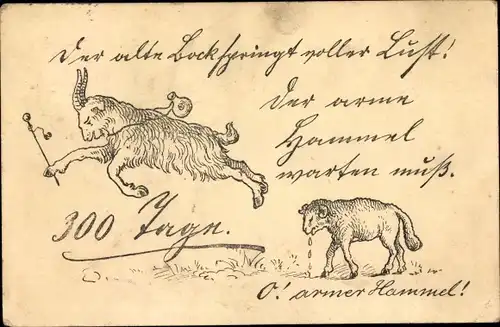 Der alte Bock springt voller Lust!
Der arme
Hammel
warten muß.
300 Tage.
O! armer Hammel!